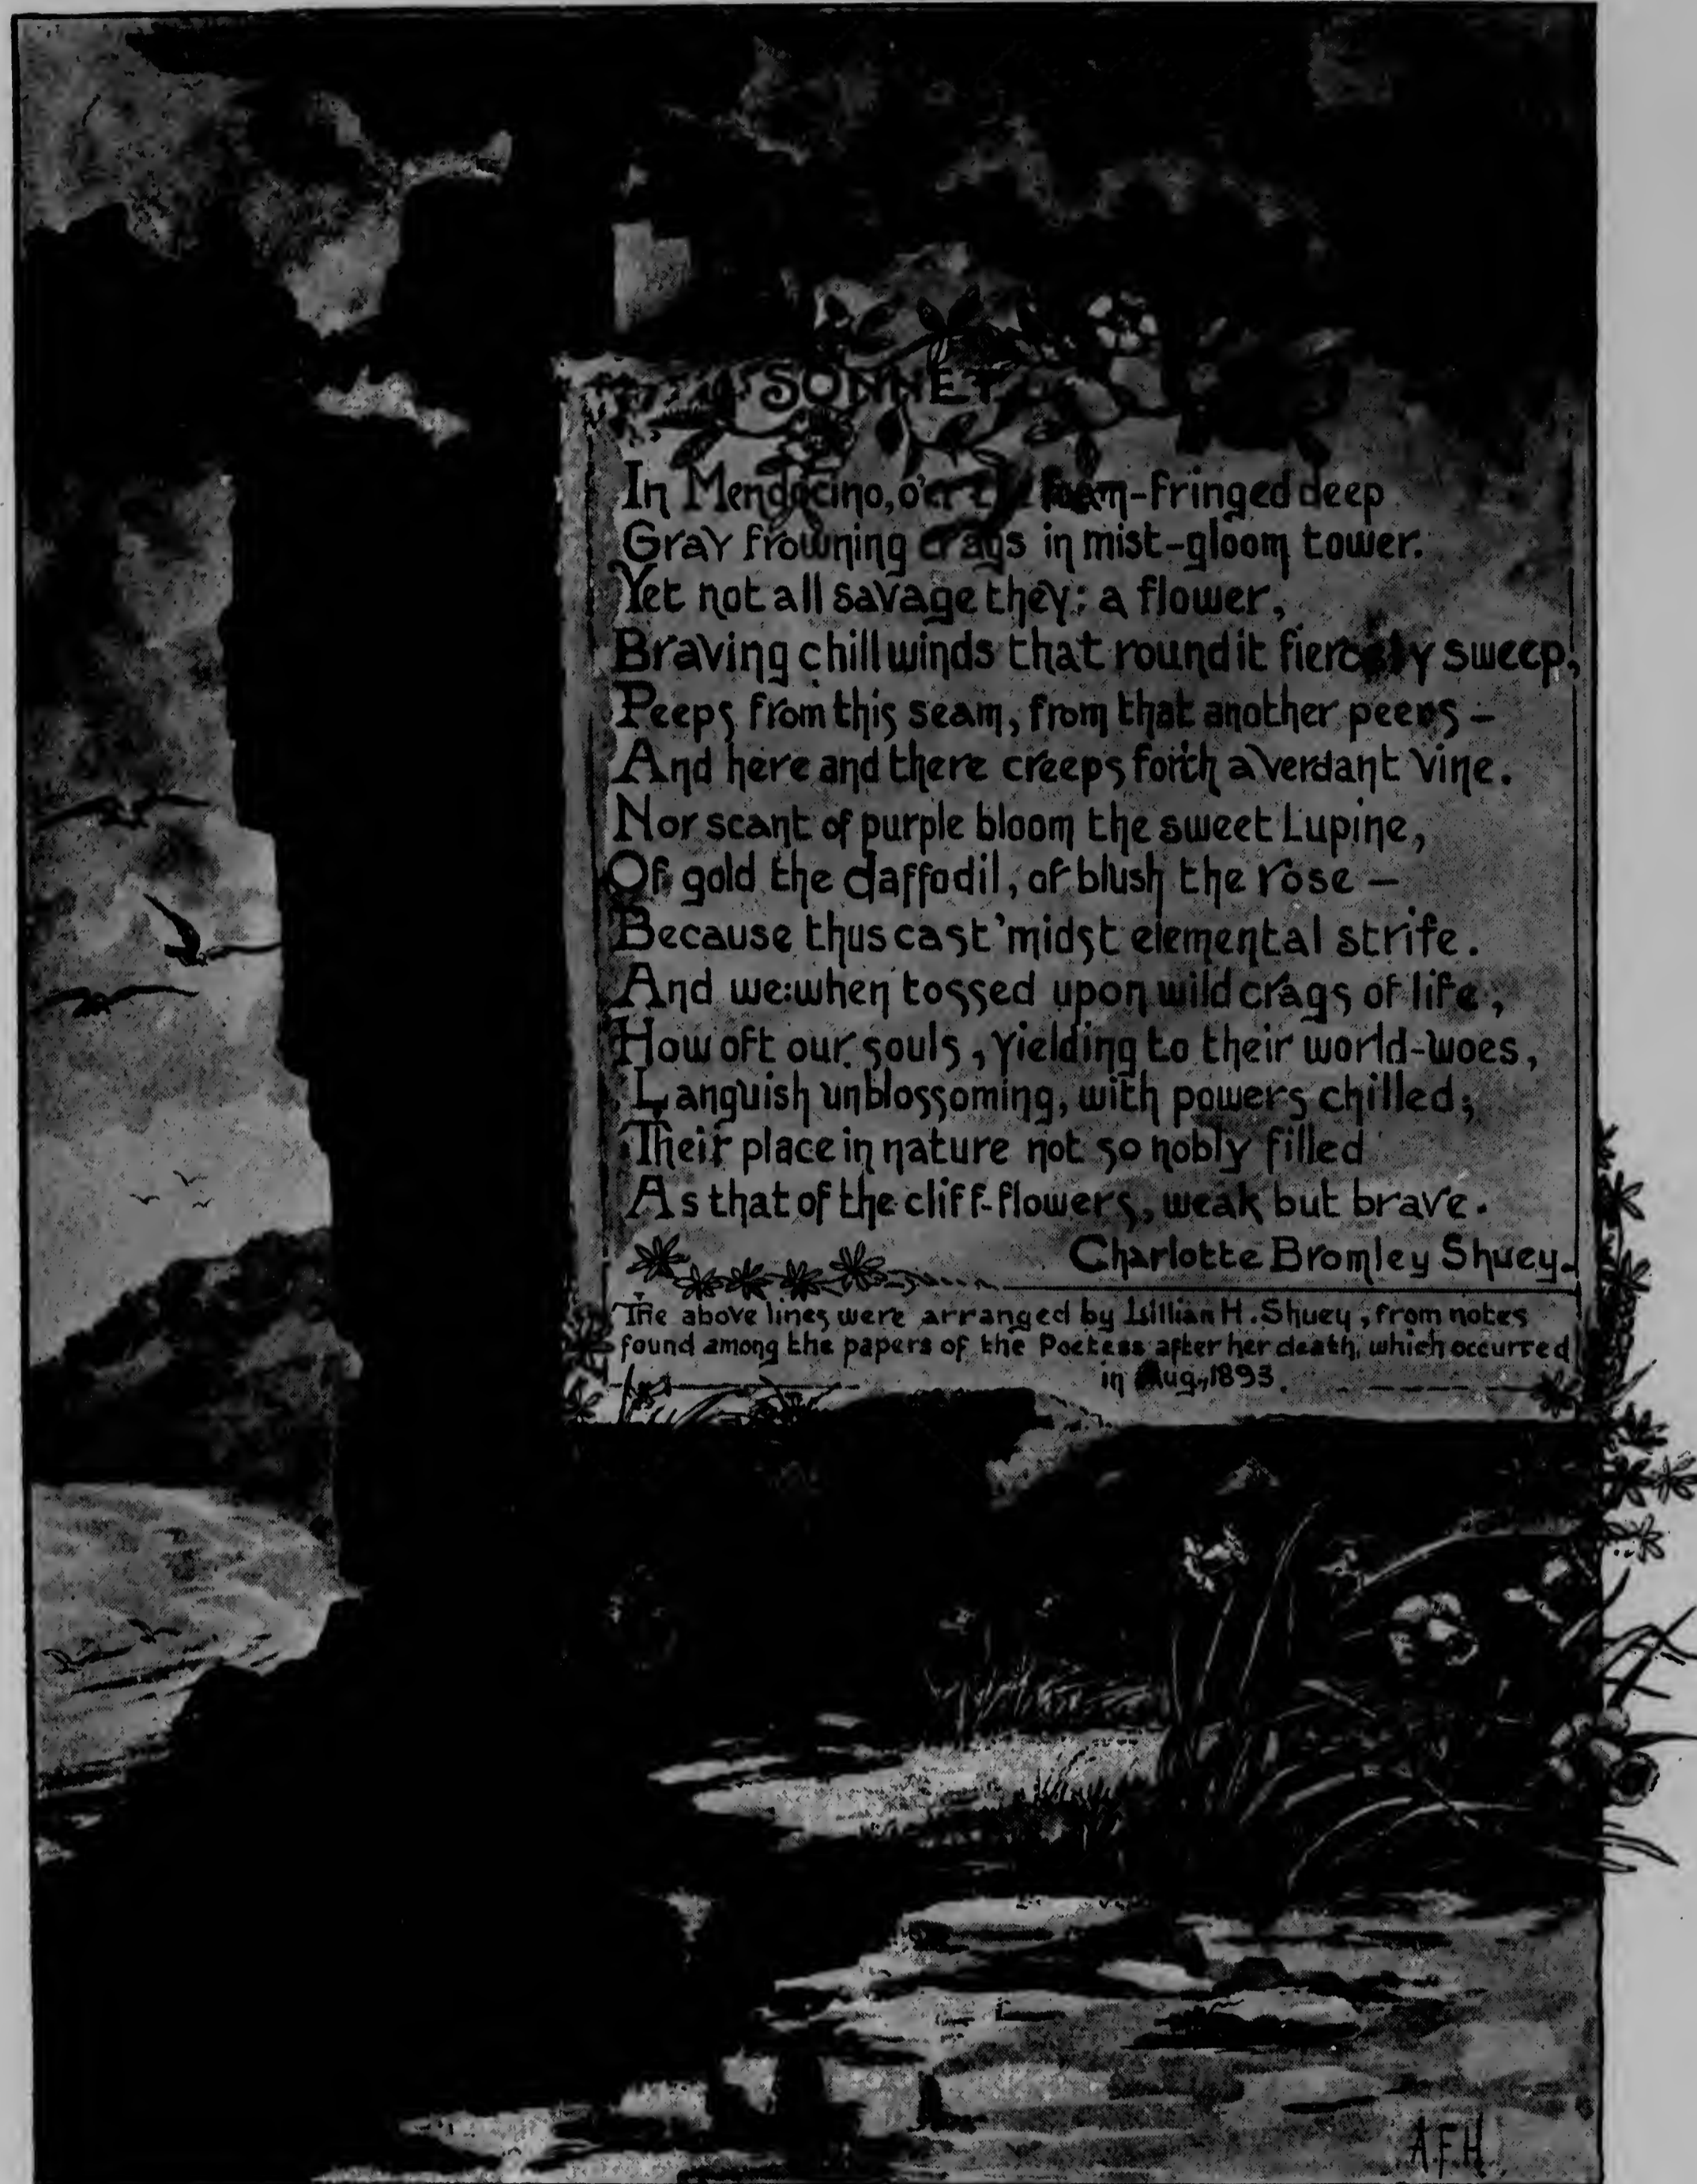 SONNET
In Mendocino, o'er the foam-fringed deep
Gray frowning crags in mist-gloom tower.
Yet not all savage they; a flower,
Braving chill winds that round it fiercely sweep,
Peeps from this seam, from that another peeps –
And here and there creeps forth a verdant vine.
Nor scant of purple bloom the sweet Lupine,
Of gold the daffodil, of blush the rose –
Because thus cast 'midst elemental strife.
And we: when tossed upon wild crags of life,
How oft our souls, yielding to their world-woes,
Languish unblossoming, with powers chilled;
Their place in nature not so nobly filled
As that of the cliff-flowers, weak but brave.
Charlotte Bromley Shuey.
The above lines were arranged by Lillian H. Shuey, from notes
found among the papers of the Poetess after her death, which occurred
in Aug., 1893.
A.F.H.